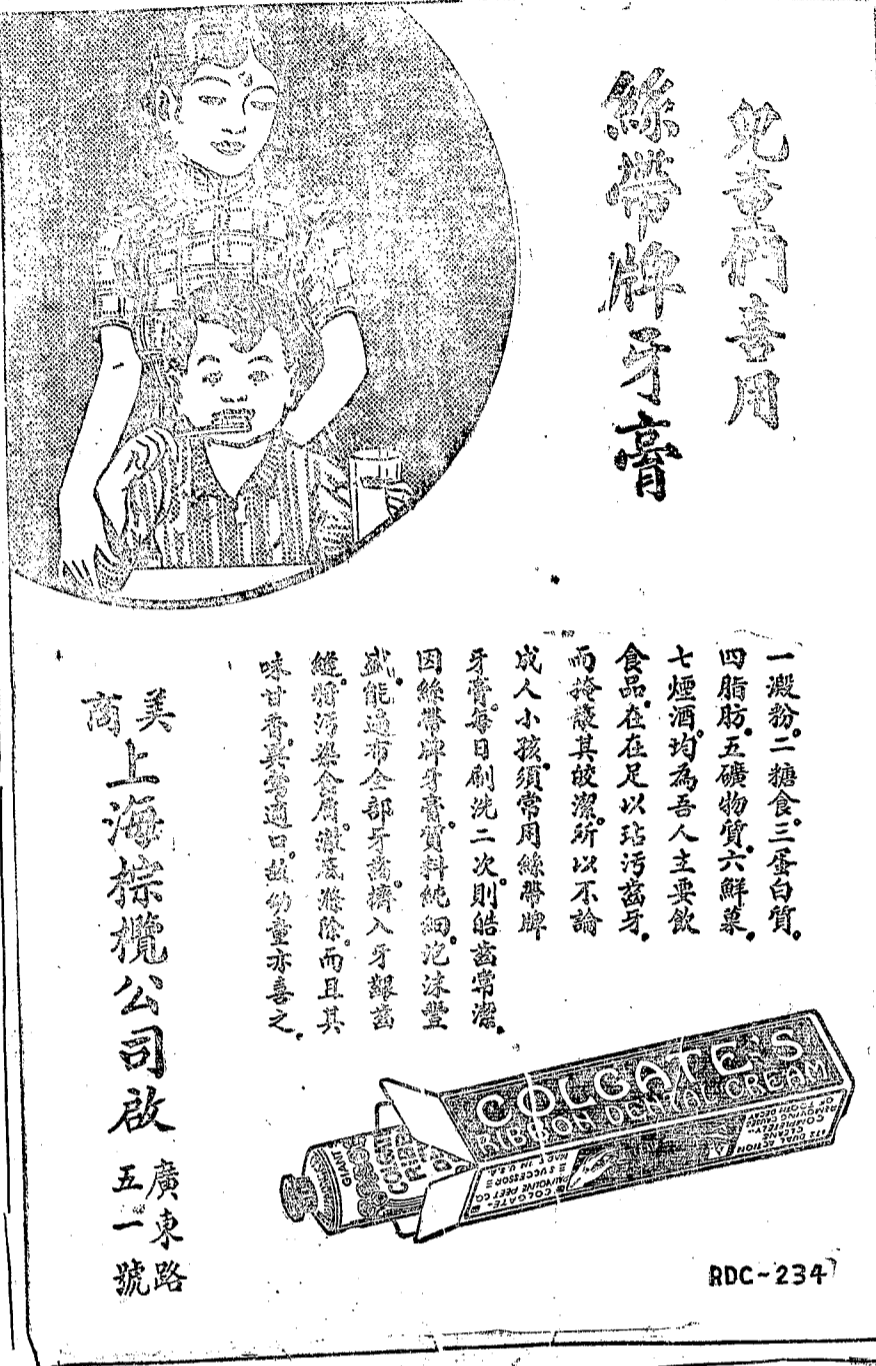 兒童們喜用
絲帶牌牙膏
一澱粉。二糖食。三蛋白質。
四脂肪。五礦物質。六鮮菓。
七煙酒。均為吾人主要飲
食品。在在足以玷污齒牙。
而掩蔽其皎潔。所以不論
成人小孩。須常用絲帶牌
牙膏。每日刷洗二次。則皓齒常潔。
因絲帶牌牙膏。質料純細。泡沫豐
盛。能遍布全部牙齒。擠入牙齦齒
縫。將污染食屑。澈底滌除。而且其
味甘香。異常適口。故幼童亦喜之。
美商
上海棕欖公司啟
廣東路
五一號
COLGATE'S
RIBBON DENTAL CREAM
COLGATE-
PALMOLIVE PEET CO.
SUCCESSOR
MADE IN U.S.A.
GIANT
RDC-234